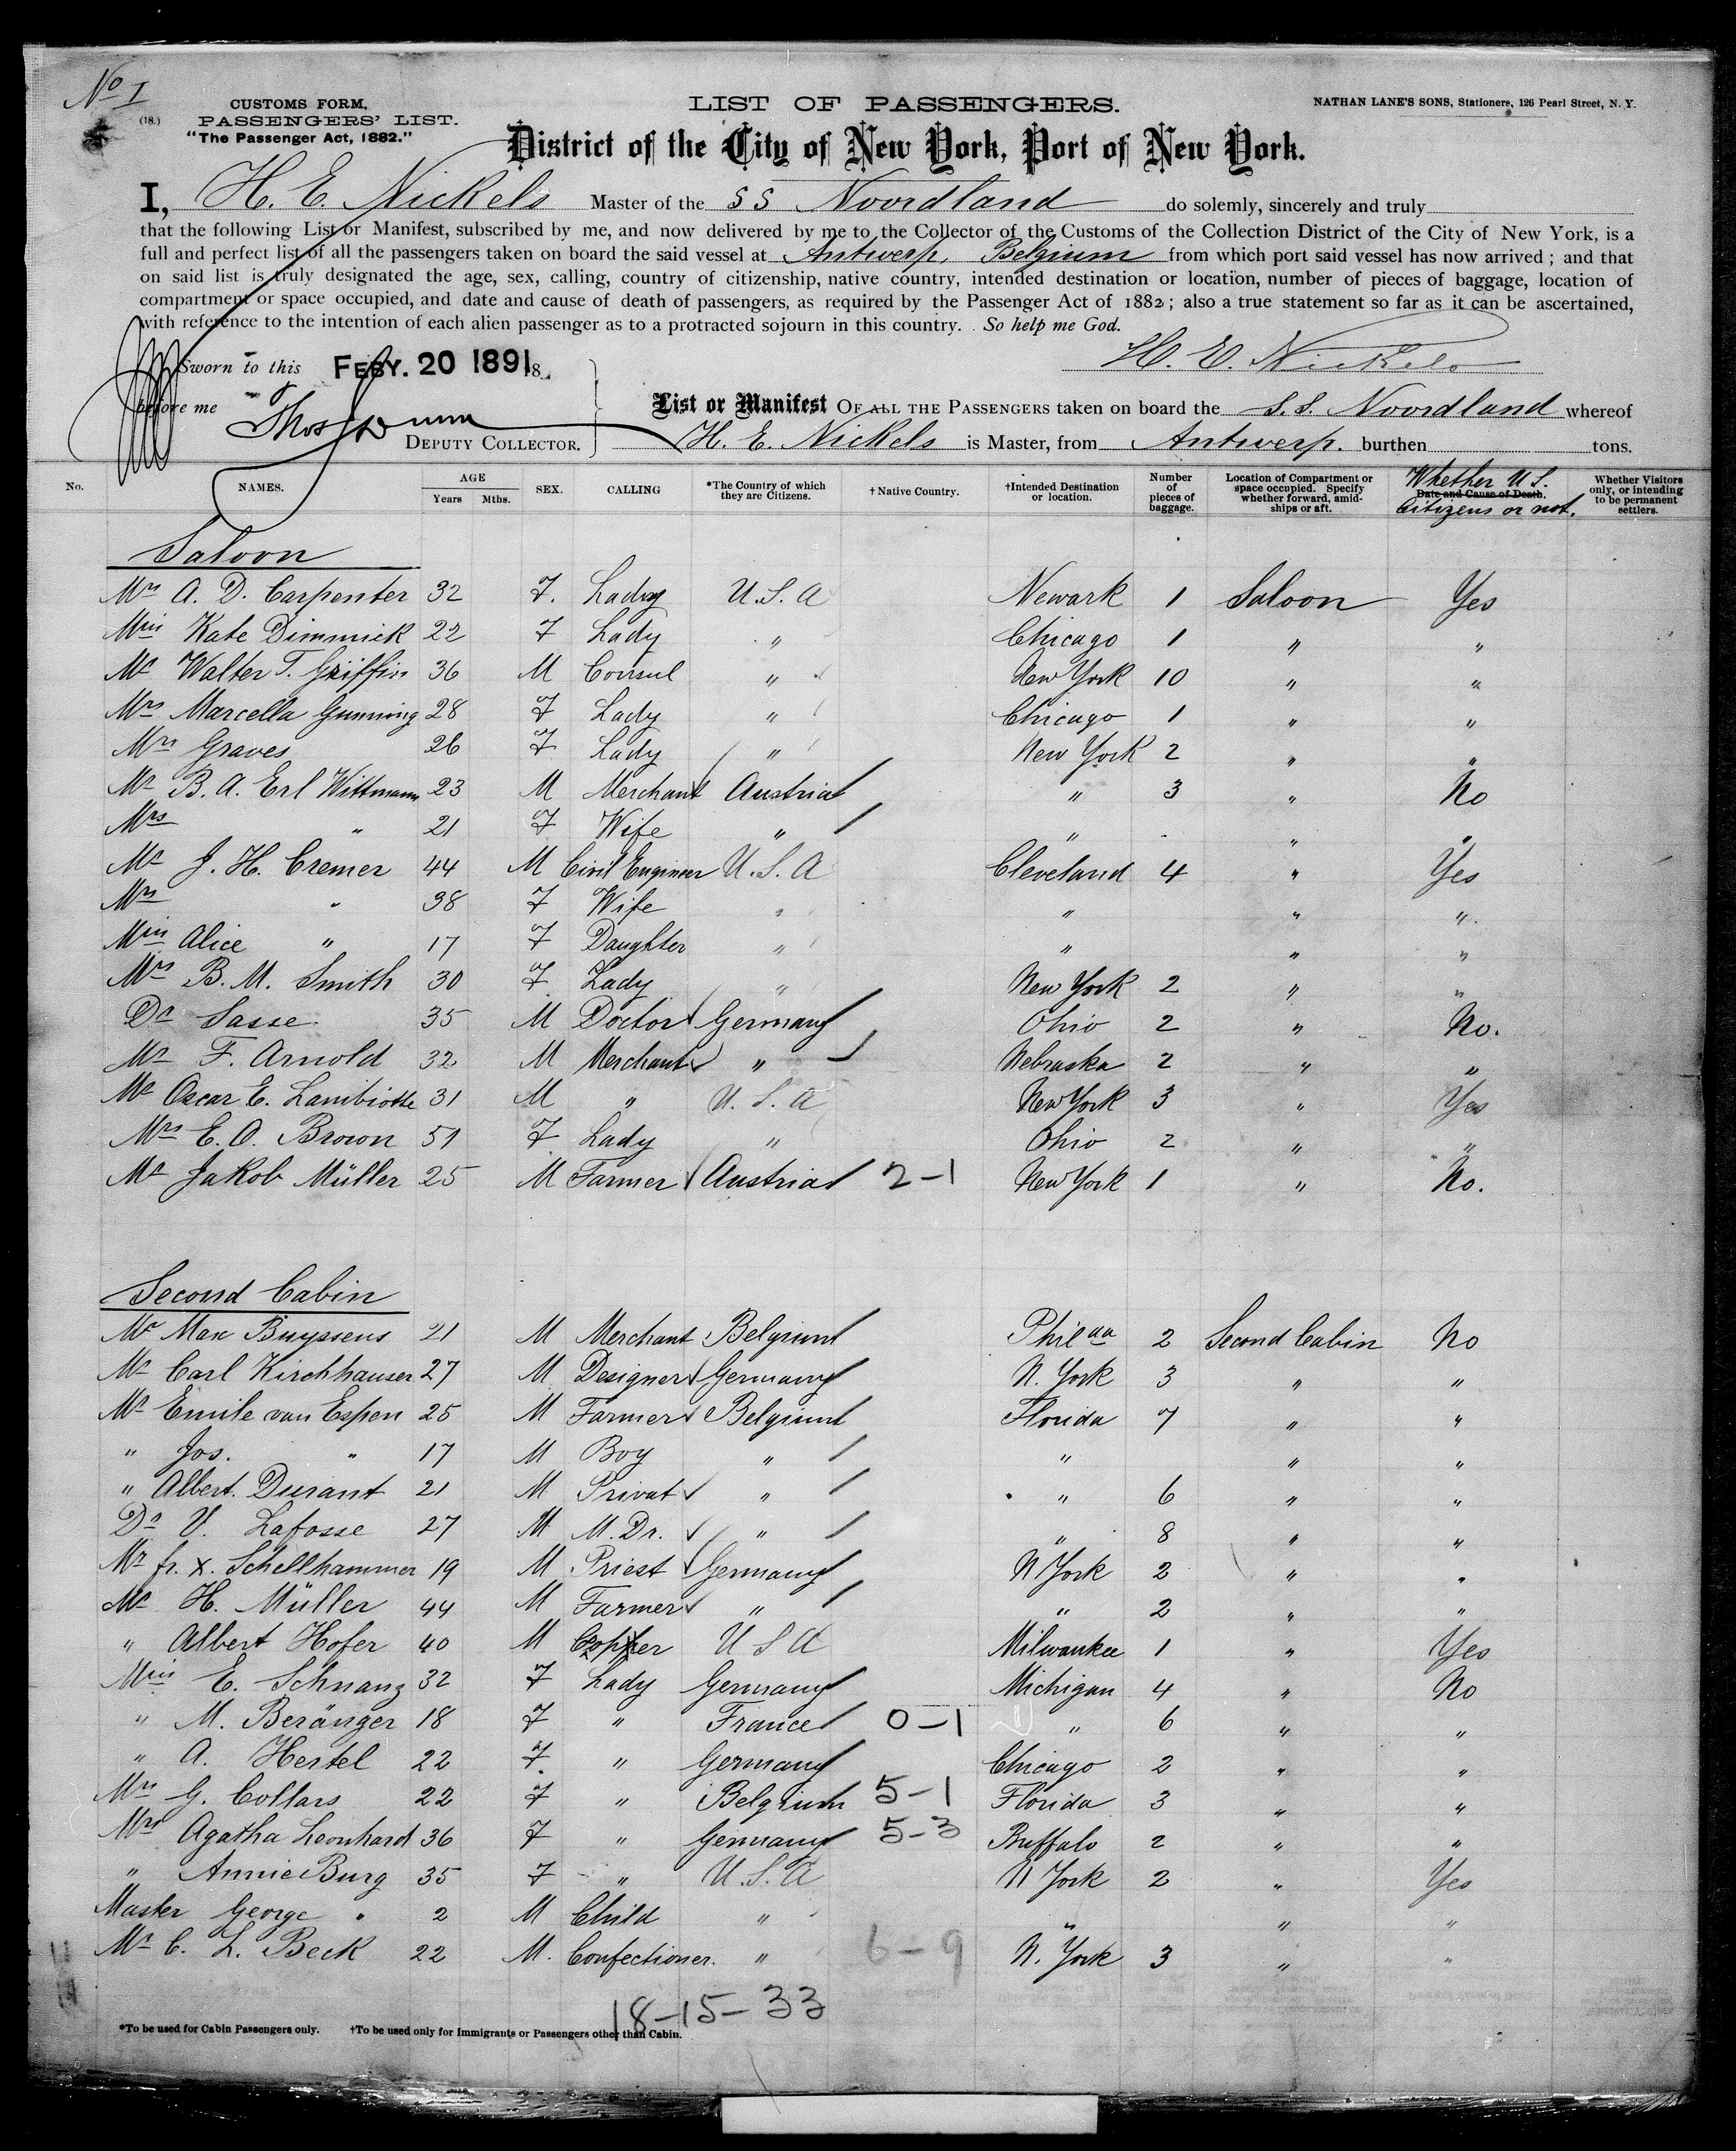 No I
CUSTOMS FORM.
(18.) PASSENGERS' LIST.
"The Passenger Act, 1882."
LIST OF PASSENGERS.
NATHAN LANE'S SONS, Stationers, 126 Pearl Street, N. Y.
District of the City of New York, Port of New York.
I, H. E. Nickels Master of the SS Noordland do solemnly, sincerely and truly
that the following List or Manifest, subscribed by me, and now delivered by me to the Collector of the Customs of the Collection District of the City of New York, is a
full and perfect list of all the passengers taken on board the said vessel at Antwerp, Belgium from which port said vessel has now arrived; and that
on said list is truly designated the age, sex, calling, country of citizenship, native country, intended destination or location, number of pieces of baggage, location of
compartment or space occupied, and date and cause of death of passengers, as required by the Passenger Act of 1882; also a true statement so far as it can be ascertained,
with reference to the intention of each alien passenger as to a protracted sojourn in this country. So help me God.
H. E. Nickels
Sworn to this FEBY. 20 1891 18
before me
Thos Dunn
DEPUTY COLLECTOR.
List or Manifest OF ALL THE PASSENGERS taken on board the S.S. Noordland whereof
H. E. Nickels is Master, from Antwerp. burthen tons.
No. NAMES. AGE Years Mths. SEX. CALLING *The Country of which they are Citizens. †Native Country. †Intended Destination or location. Number of pieces of baggage. Location of Compartment or space occupied. Specify whether forward, amidships or aft. Date and Cause of Death. Whether U S. Citizens or not. Whether Visitors only, or intending to be permanent settlers.
Saloon
Mrs A. D. Carpenter 32 F. Lady U.S.A Newark 1 Saloon Yes
Miss Kate Dimmick 22 F Lady " Chicago 1 " "
Mr Walter T. Griffin 36 M Consul " New York 10 " "
Mrs Marcella Gunning 28 F Lady " Chicago 1 " "
Mrs Graves 26 F Lady " New York 2 " "
Mr B. A. Erl Wittmann 23 M Merchant Austria " 3 " No
Mrs " 21 F Wife " " " "
Mr J. H. Cremer 44 M Civil Engineer U.S.A Cleveland 4 " Yes
Mrs " 38 F Wife " " " "
Miss Alice " 17 F Daughter " " " "
Mrs B. M. Smith 30 F Lady " New York 2 " "
Dr Sasse 35 M Doctor Germany Ohio 2 " No.
Mr F. Arnold 32 M Merchant " Nebraska 2 " "
Mr Oscar E. Lambiotte 31 M " U.S.A New York 3 " Yes
Mrs E. O. Brown 51 F Lady " Ohio 2 " "
Mr Jakob Müller 25 M Farmer Austria 2-1 New York 1 " No.
Second Cabin
Mr Max Buyssens 21 M Merchant Belgium Phil aa 2 Second Cabin No
Mr Carl Kirchhauser 27 M Designer Germany N. York 3 " "
Mr Emile van Espen 25 M Farmer Belgium Florida 7 " "
" Jos. " 17 M Boy " " " "
" Albert. Durant 21 M Privat " " 6 " "
Dr V. Lafosse 27 M M. Dr. " " 8 " "
Mr fr. X. Schellhammer 19 M Priest Germany N York 2 " "
Mr H. Müller 44 M Farmer " " 2 " "
" Albert Hofer 40 M U S A Milwaukee 1 " Yes
Miss E. Schnanz 32 F Lady Germany Michigan 4 " No
" M. Beränger 18 F " France 0-1 " 6 " "
" A. Hertel 22 F. " Germany Chicago 2 " "
Mrs G. Collars 22 F " Belgium 5-1 Florida 3 " "
Mrs Agatha Leonhard 36 F " Germany 5-3 Buffalo 2 " "
" Annie Burg 35 F " U.S.A N York 2 " Yes
Master George " 2 M Child " " " "
Mr C. L. Beck 22 M. Confectioner. " 6-9 N. York 3 " "
18-15-33
*To be used for Cabin Passengers only. †To be used only for Immigrants or Passengers other than Cabin.